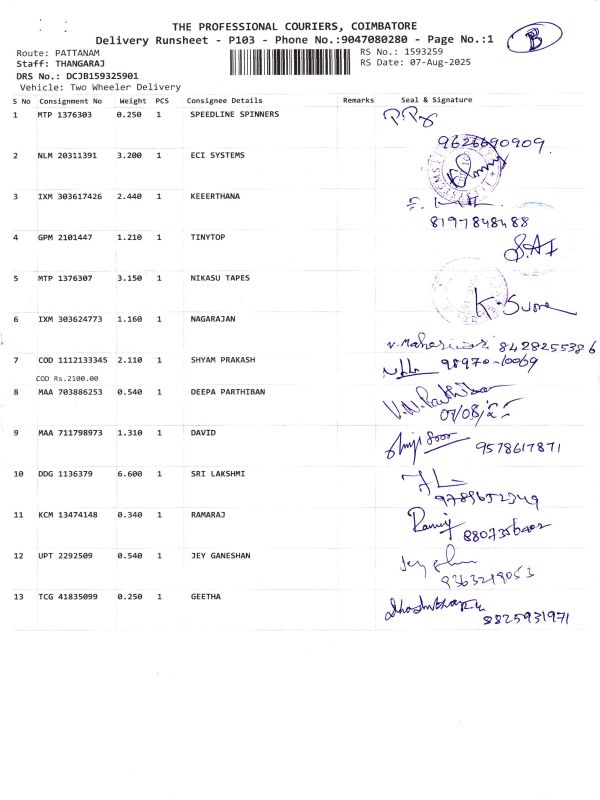 THE PROFESSIONAL COURIERS, COIMBATORE
Delivery Runsheet - P103 - Phone No.:9047080280 - Page No.:1
B
Route: PATTANAM
RS No.: 1593259
Staff: THANGARAJ
RS Date: 07-Aug-2025
DRS No.: DCJB159325901
Vehicle: Two Wheeler Delivery
S No Consignment No Weight PCS Consignee Details Remarks Seal & Signature
1 MTP 1376303 0.250 1 SPEEDLINE SPINNERS
9626690909
2 NLM 20311391 3.200 1 ECI SYSTEMS
3 IXM 303617426 2.440 1 KEEERTHANA
8197848488
4 GPM 2101447 1.210 1 TINYTOP
5 MTP 1376307 3.150 1 NIKASU TAPES
6 IXM 303624773 1.160 1 NAGARAJAN
8428255386
7 COD 1112133345 2.110 1 SHYAM PRAKASH
98970-10069
COD Rs.2100.00
8 MAA 703886253 0.540 1 DEEPA PARTHIBAN
9 MAA 711798973 1.310 1 DAVID
9578617871
10 DDG 1136379 6.600 1 SRI LAKSHMI
11 KCM 13474148 0.340 1 RAMARAJ
12 UPT 2292509 0.540 1 JEY GANESHAN
9363219053
13 TCG 41835099 0.250 1 GEETHA
8825931971